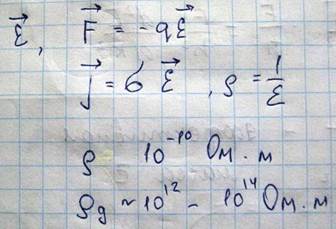 ℰ⃗, F⃗ = -qℰ⃗
j⃗ = б ℰ⃗, ρ = 1/ℰ
ρ 10⁻¹⁰ Ом·м
ρg ~ 10¹² - 10¹⁴ Ом·м